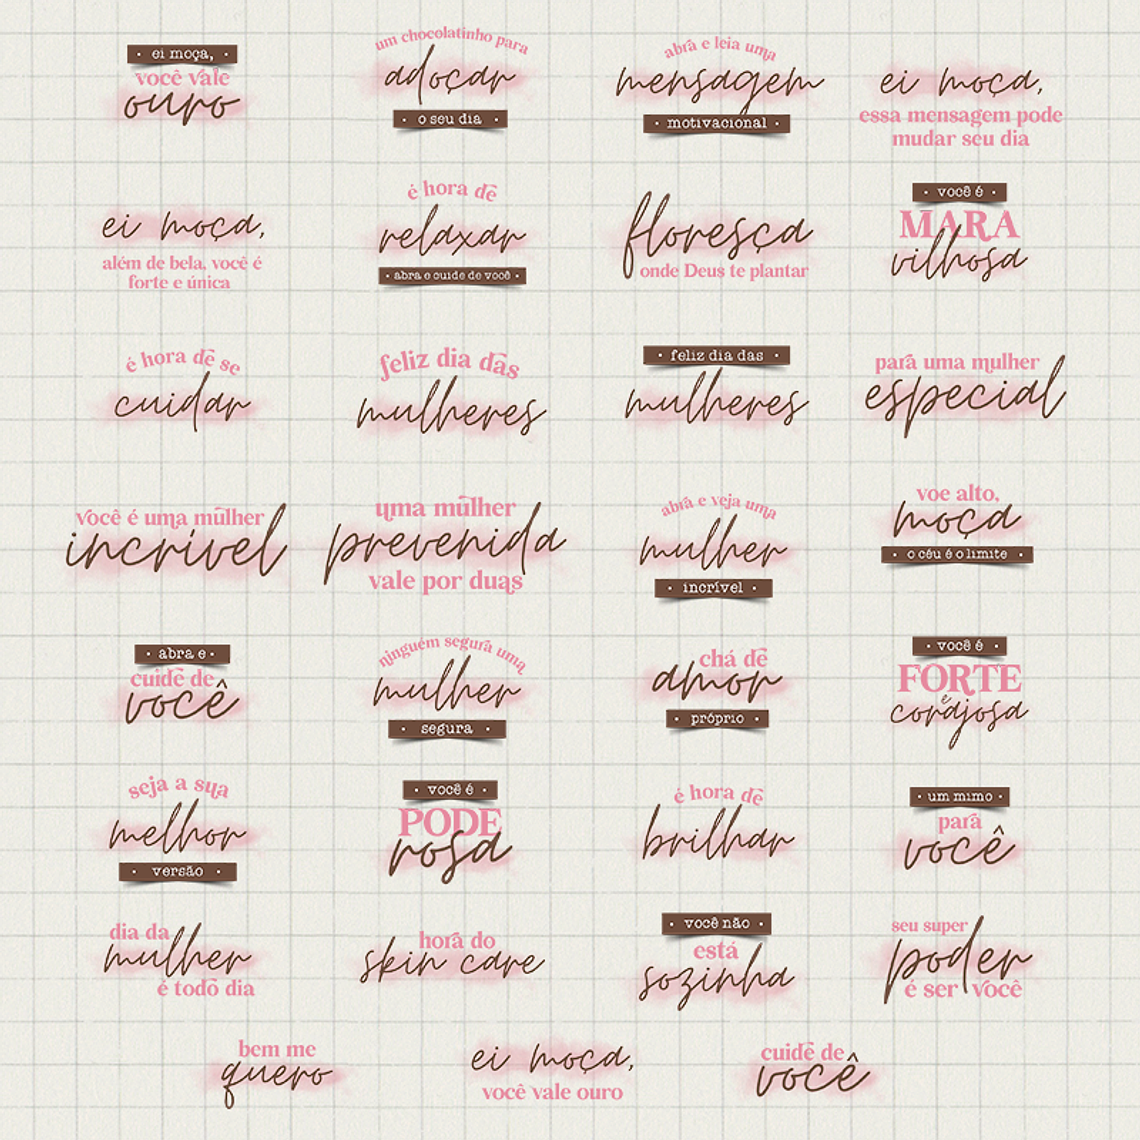 ei moça,
você vale
ouro
um chocolatinho para
adoçar
o seu dia
abra e leia uma
mensagem
motivacional
ei moça,
essa mensagem pode
mudar seu dia
ei moça,
além de bela, você é
forte e única
é hora de
relaxar
abra e cuide de você
floresça
onde Deus te plantar
você é
MARA
vilhosa
é hora de se
cuidar
feliz dia das
mulheres
feliz dia das
mulheres
para uma mulher
especial
você é uma mulher
incrível
uma mulher
prevenida
vale por duas
abra e veja uma
mulher
incrível
voe alto,
moça
o céu é o limite
abra e
cuide de
você
ninguém segura uma
mulher
segura
chá de
amor
próprio
você é
FORTE
e
corajosa
seja a sua
melhor
versão
você é
PODE
rosa
é hora de
brilhar
um mimo
para
você
dia da
mulher
é todo dia
hora do
skin care
você não
está
sozinha
seu super
poder
é ser você
bem me
quero
ei moça,
você vale ouro
cuide de
você